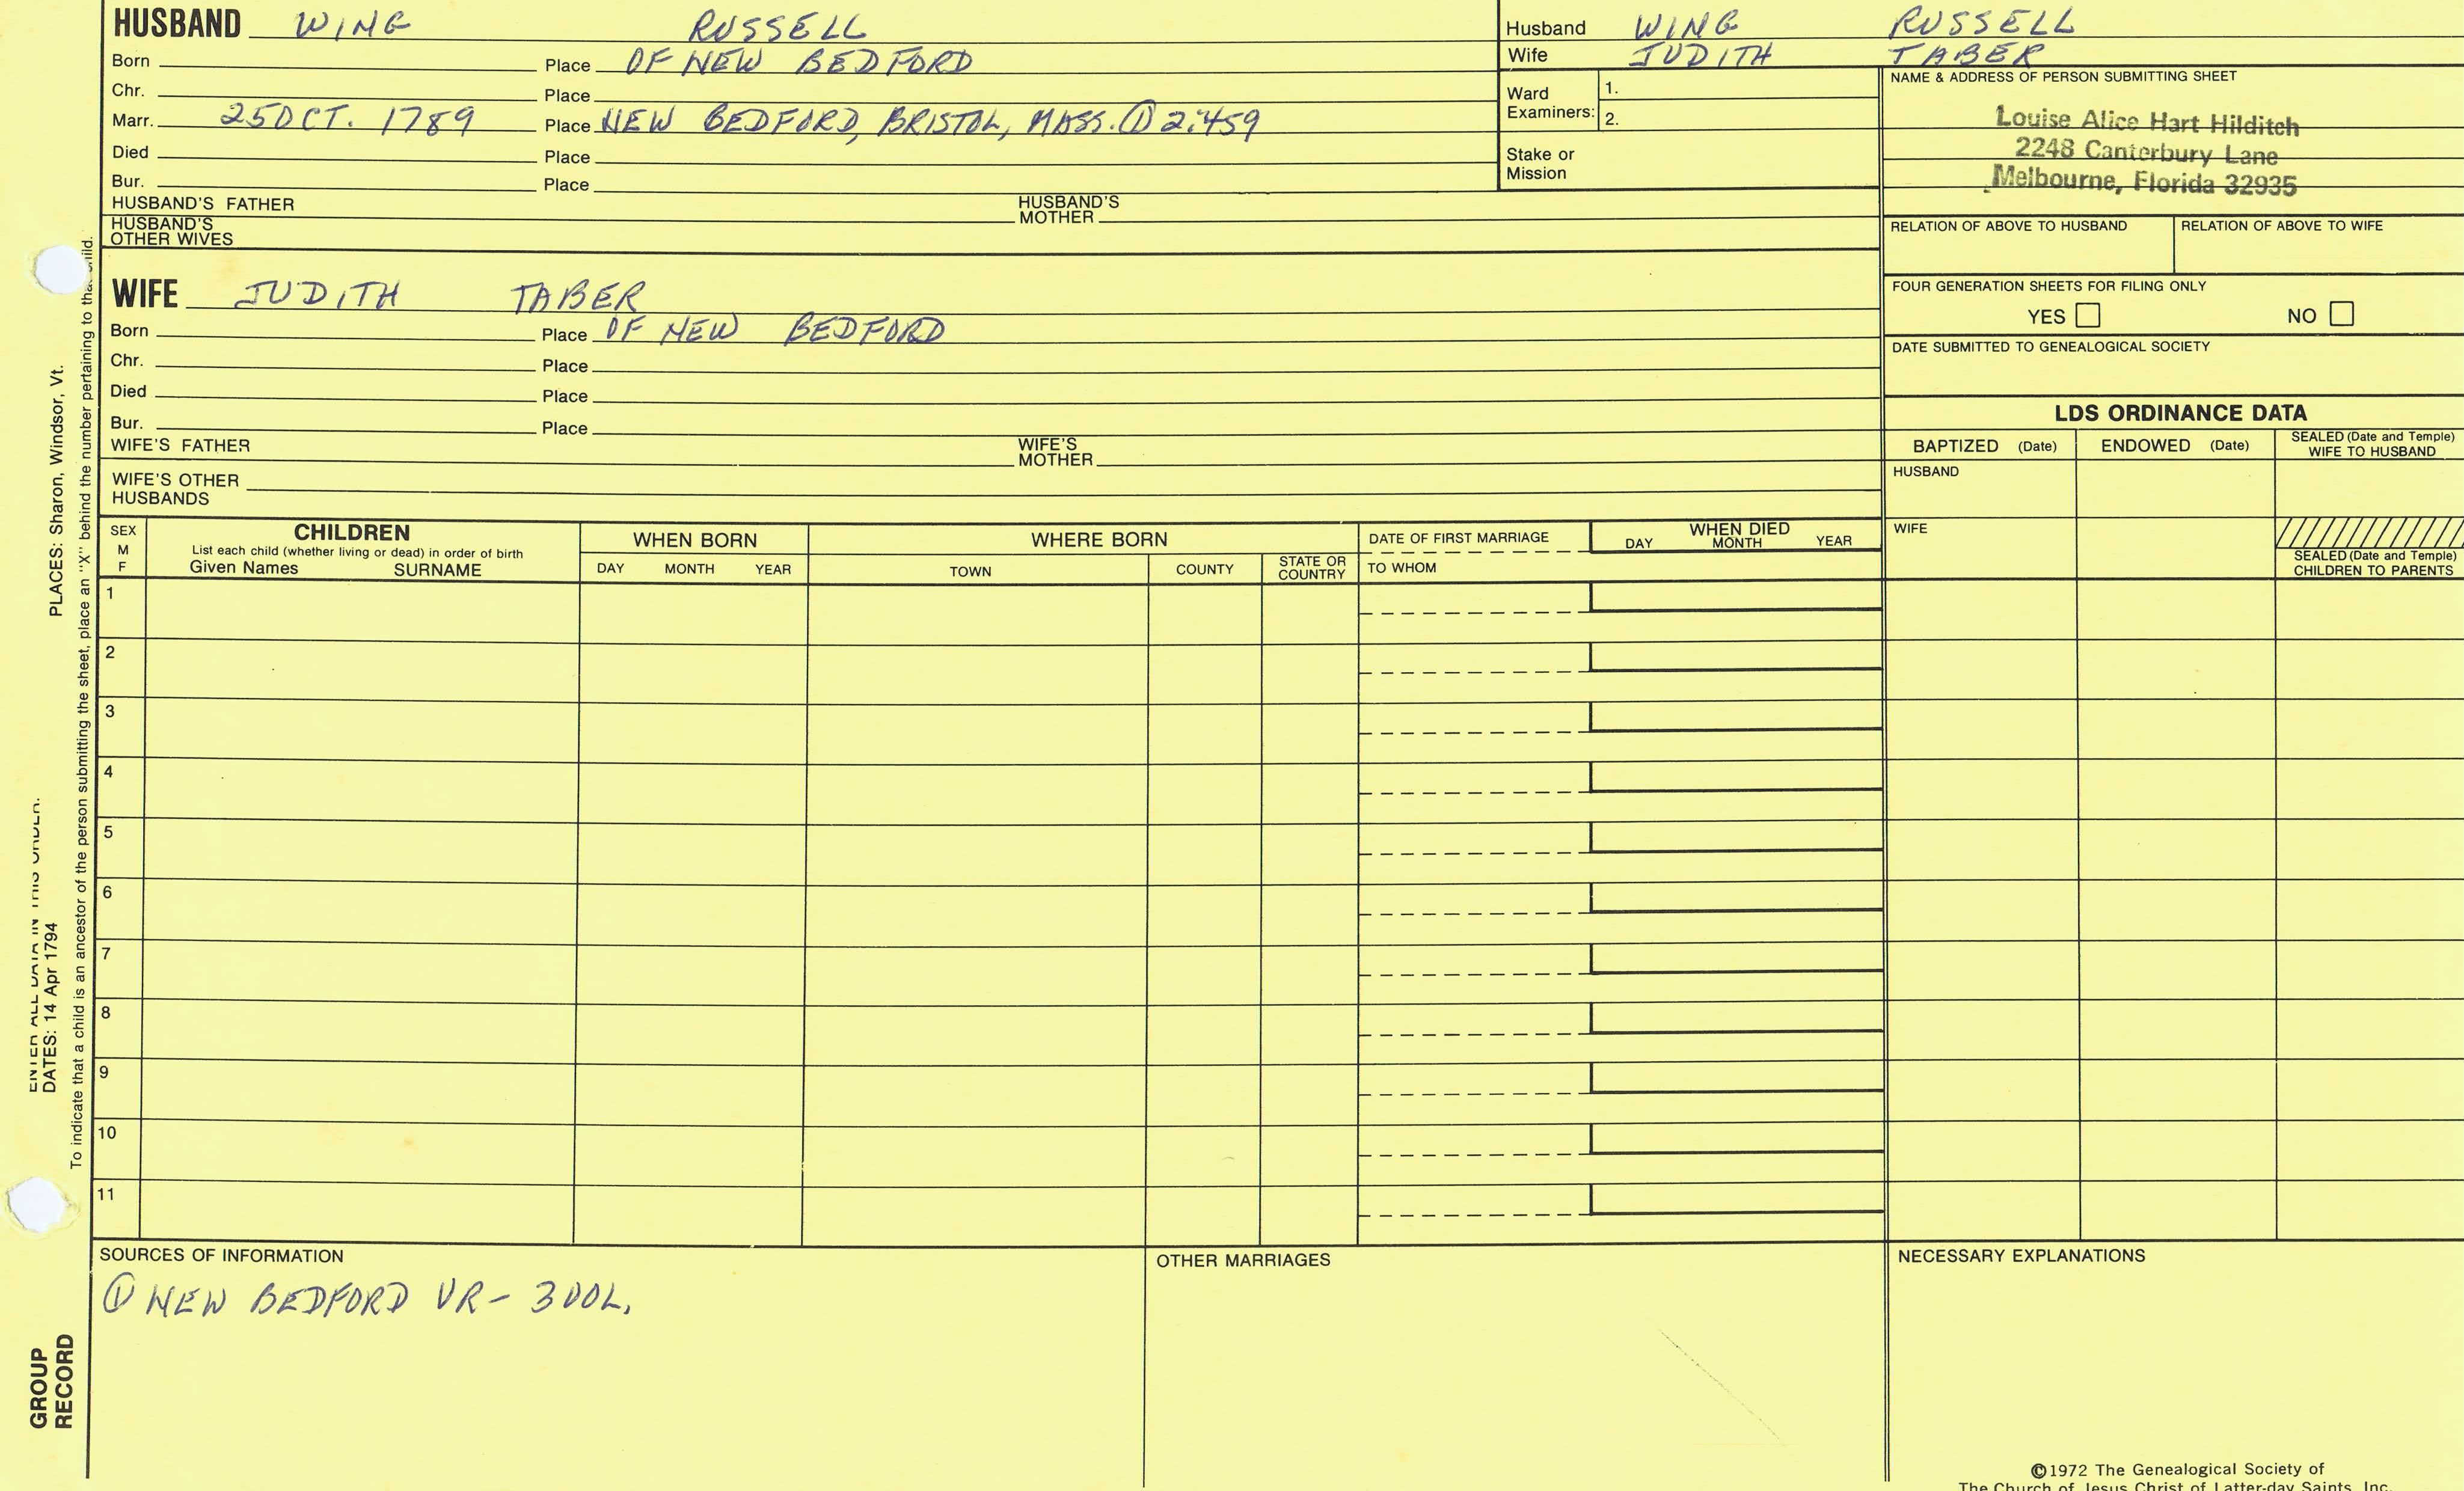 HUSBAND WING RUSSELL
Born Place OF NEW BEDFORD
Chr. Place
Marr. 25 OCT. 1789 Place NEW BEDFORD, BRISTOL, MASS. ① 2:459
Died Place
Bur. Place
HUSBAND'S FATHER HUSBAND'S MOTHER
HUSBAND'S OTHER WIVES
Husband WING RUSSELL
Wife JUDITH TABER
Ward Examiners: 1.
2.
Stake or Mission
NAME & ADDRESS OF PERSON SUBMITTING SHEET
Louise Alice Hart Hilditch
2248 Canterbury Lane
Melbourne, Florida 32935
RELATION OF ABOVE TO HUSBAND RELATION OF ABOVE TO WIFE
FOUR GENERATION SHEETS FOR FILING ONLY
YES NO
DATE SUBMITTED TO GENEALOGICAL SOCIETY
WIFE JUDITH TABER
Born Place OF NEW BEDFORD
Chr. Place
Died Place
Bur. Place
WIFE'S FATHER WIFE'S MOTHER
WIFE'S OTHER HUSBANDS
LDS ORDINANCE DATA
BAPTIZED (Date) ENDOWED (Date) SEALED (Date and Temple) WIFE TO HUSBAND
HUSBAND
WIFE
SEALED (Date and Temple) CHILDREN TO PARENTS
SEX M F
CHILDREN
List each child (whether living or dead) in order of birth
Given Names SURNAME
WHEN BORN
DAY MONTH YEAR
WHERE BORN
TOWN COUNTY STATE OR COUNTRY
DATE OF FIRST MARRIAGE
TO WHOM
WHEN DIED
DAY MONTH YEAR
1
2
3
4
5
6
7
8
9
10
11
SOURCES OF INFORMATION
① NEW BEDFORD VR- 3 VOL.
OTHER MARRIAGES
NECESSARY EXPLANATIONS
©1972 The Genealogical Society of
The Church of Jesus Christ of Latter-day Saints, Inc.
ENTER ALL DATA IN THIS ORDER:
DATES: 14 Apr 1794 PLACES: Sharon, Windsor, Vt.
To indicate that a child is an ancestor of the person submitting the sheet, place an "X" behind the number pertaining to that child.
GROUP
RECORD